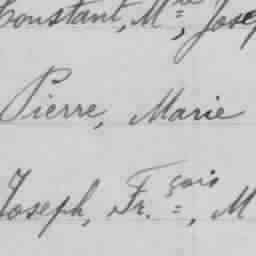 Constant, Mie, Josep
Pierre, Marie
Joseph, Fr.çois, M